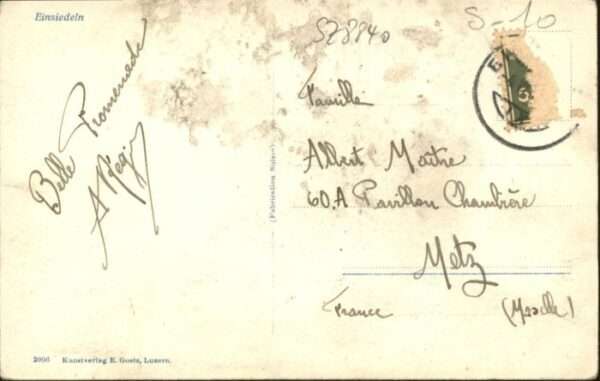 Einsiedeln
SZ8840
S-10
Belle Promenade
Famille
Albert Maitre
60.A Pavillon Chambière
Metz
France (Moselle)
(Fabrication Suisse)
2096 Kunstverlag E. Goetz, Luzern.